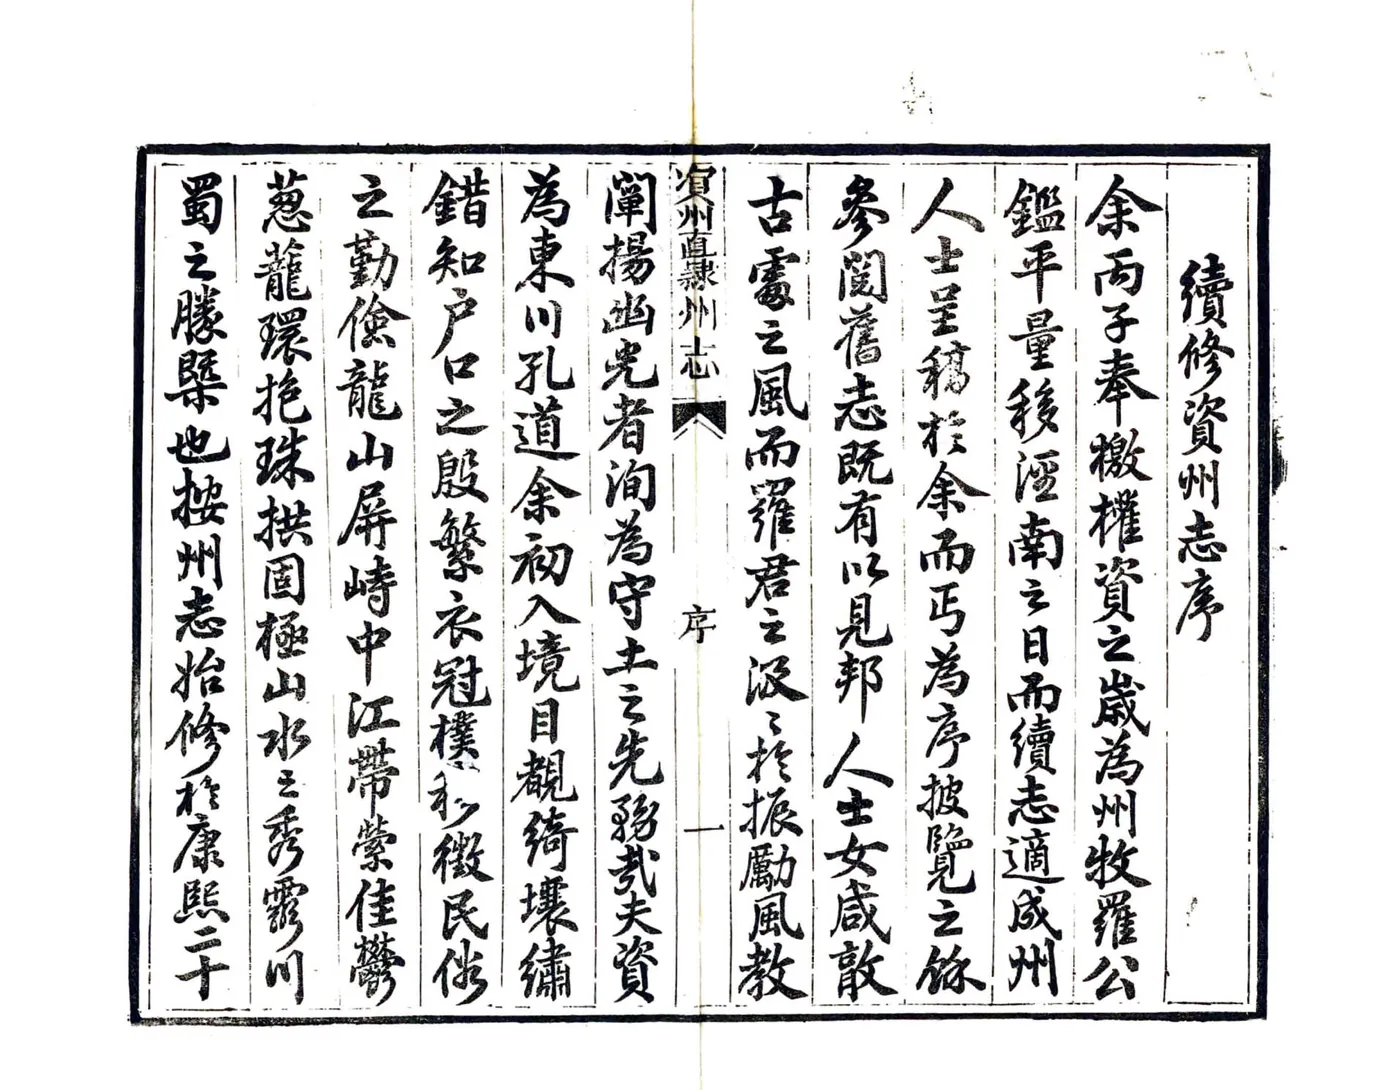 續修資州志序
余丙子奉檄權資之歲為州牧羅公
鑑平量移涇南之日而續志適成州
人士呈稿於余而丐為序披覽之餘
參閱舊志既有以見邦人士女咸敦
古處之風而羅君之汲〻於振勵風教
資州直隸州志
序
一
闡揚幽光者洵為守土之先務哉夫資
為東川孔道余初入境目覩綺壤繡
錯知戶口之殷繁衣冠樸 徵民俗
之勤儉龍山屏峙中江帶縈佳鬱
蔥蘢環抱珠拱固極山水之秀靈川
蜀之勝槩也按州志始修於康熙二十